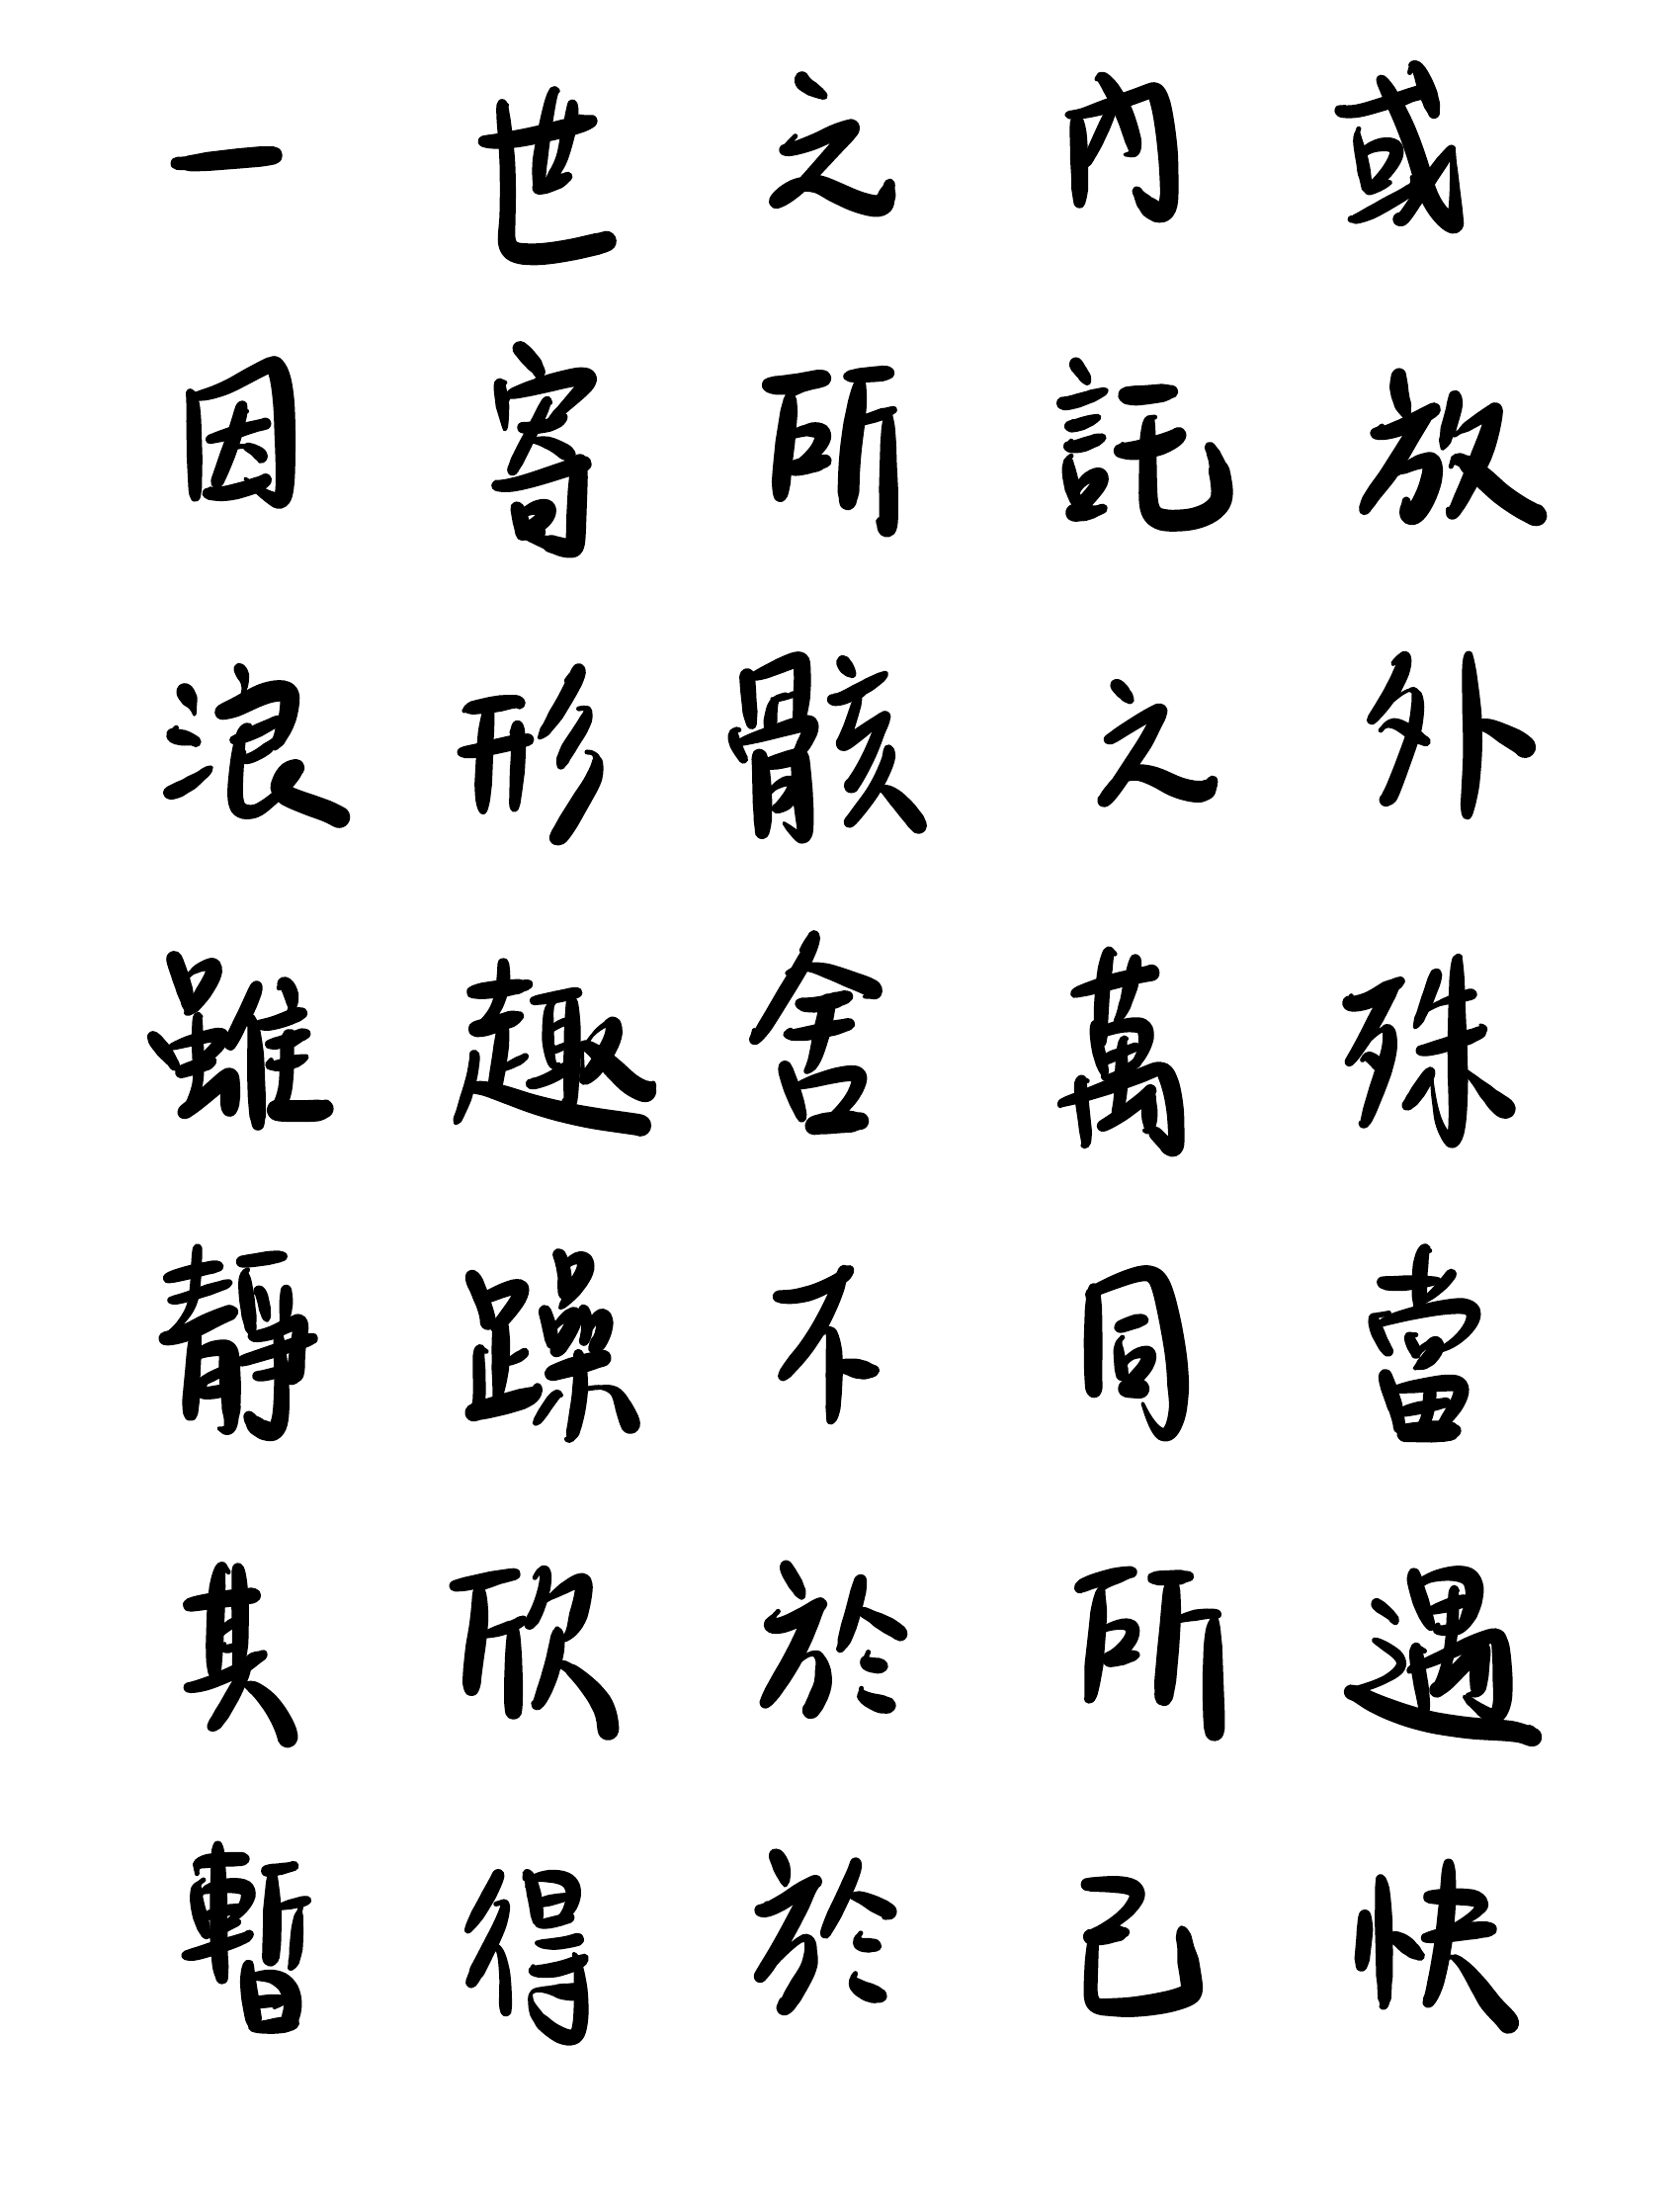 一世之內或
因寄所託放
浪形骸之外
雖趣舍萬殊
靜躁不同當
其欣於所遇
暫得於己快